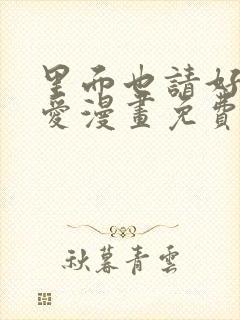 里而也請好
愛漫畫免費
秋暮青雲